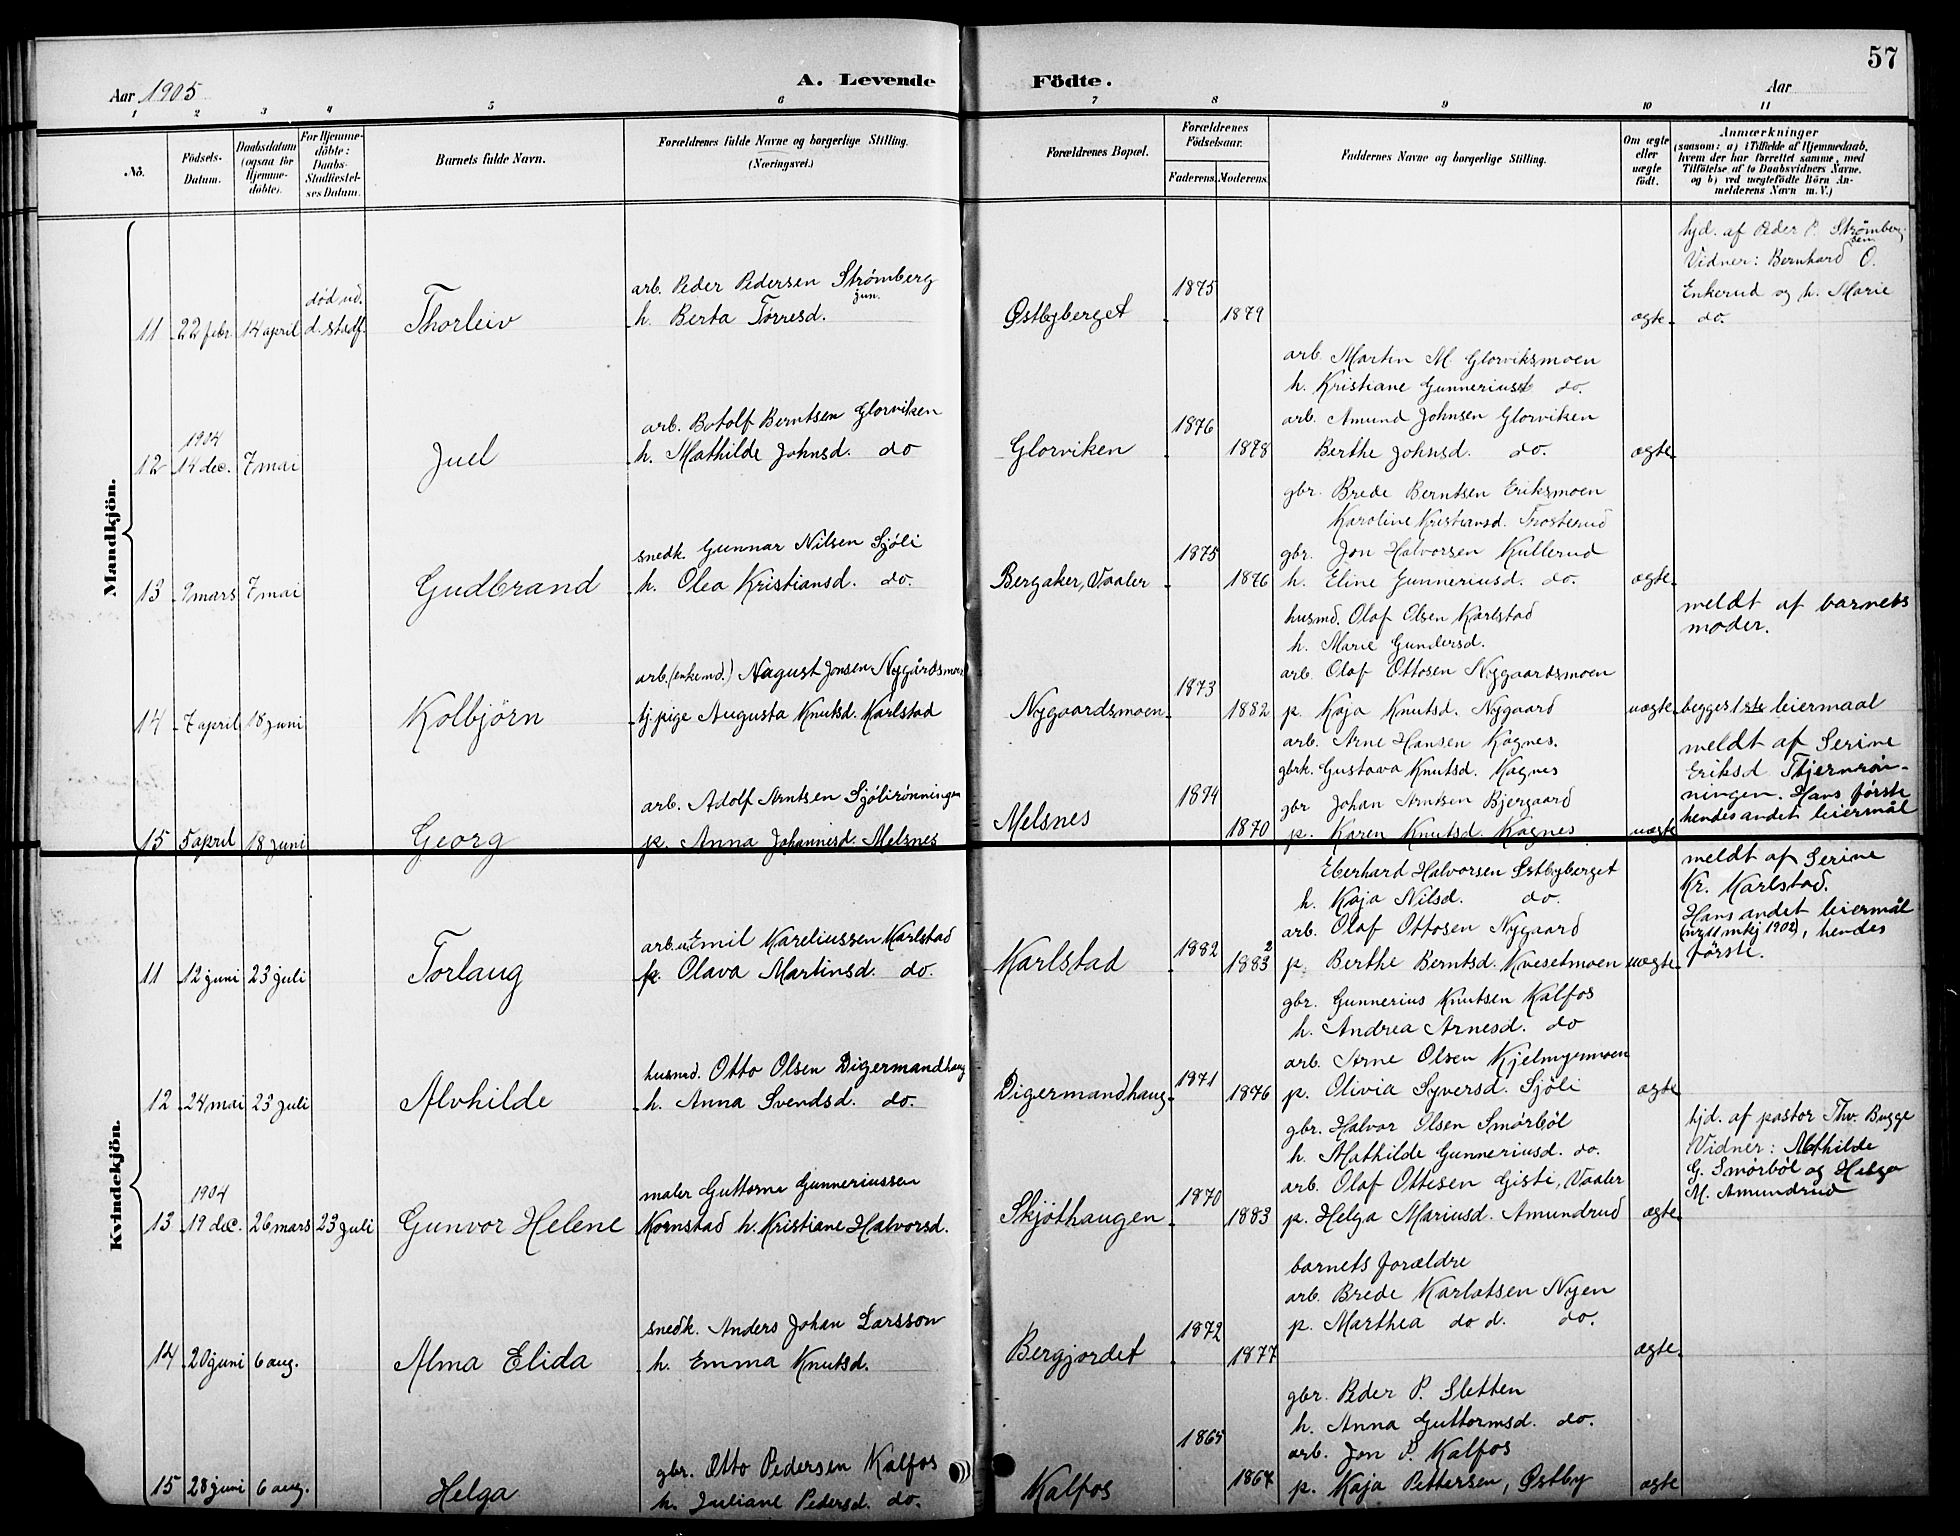 57
Aar 1905
A. Levende Födte.
Aar
1 2 3 4 5 6 7 8 9 10 11
No.
Födsels-Datum.
Daabsdatum (ogsaa for Hjemmedöbte).
For Hjemmedöbte: Daabs-Stadfæstelses Datum.
Barnets fulde Navn.
Forældrenes fulde Navne og borgerlige Stilling. (Næringsvei.)
Forældrenes Bopæl.
Forældrenes Födselsaar.
Faderens. Moderens.
Faddernes Navne og borgerlige Stilling.
Om ægte eller uægte født.
Anmærkninger
(saasom: a) i Tilfælde af Hjemmedaab, hvem der har forrettet samme, med Tilföielse af to Daabsvidners Navne. og b) ved uægtefödte Börn Anmelderens Navn m. V.)
Mandkjön.
11 22 febr. 14 april død ud. d. stadf. Thorleiv
arb. Peder Pedersen Strømberg jun.
h. Berta Tørresd.
Østbyberget 1875 1879 ægte
hjd. af Peder P. Strømberg sen.
Vidner: Bernhard O.
Enkerud og h. Marie
do.
12 1904 14 dec. 7 mai Juel
arb. Botolf Berntsen Glorviken
h. Mathilde Johnsd. do
Glorviken 1876 1878
arb. Martin M. Glorviksmoen
h. Kristiane Gunneriusd do.
arb. Amund Johnsen Glorviken
Berthe Johnsd. do. ægte
13 9 mars 7 mai Gudbrand
snedk. Gunnar Nilsen Sjöli
h. Olea Kristiansd. do.
Bergaker, Vaaler 1875 1876
gbr. Brede Berntsen Eriksmoen
Karoline Kristiansd. Frosterud
gbr. Jon Halvorsen Kullerud
h. Eline Gunneriusd. do. ægte
14 7 april 18 juni Kolbjörn
arb. (enkemd.) August Jonsen Nygårdsmoen
tj.pige Augusta Knutsd. Karlstad
Nygaardsmoen 1873 1882
husmd. Olaf Olsen Karlstad
h. Marie Gundersd.
arb. Olaf Ottosen Nygaardsmoen
p. Kaja Knutsd. Nygaard uægte
meldt af barnets
moder.
begges 1ste leiermaal
15 5 april 18 juni Georg
arb. Adolf Arntsen Sjölirönningen
p. Anna Johannesd. Melsnes
Melsnes 1874 1870
arb. Arne Hansen Kagnes.
gbrk. Gustava Knutsd. Kagnes
gbr Johan Arntsen Bjergaard
p. Karen Knutsd. Kagnes uægte
meldt af Serine
Eriksd Tbjernrön-
ningen. Hans første
hendes andet leiermål
Kvindekjön.
11 12 juni 23 juli Torlaug
arb. Emil Kareliussen Karlstad
p. Olava Martinsd. do.
Karlstad 1882 1883 2
Eberhard Halvorsen Östbyberget
h. Kaja Nilsd. do.
arb. Olaf Ottosen Nygaard
p. Berthe Berntsd. Kvesetmoen uægte
meldt af Serine
Kr. Karlstad.
Hans andet leiermål
(nr 11 mkj 1902), hendes
förste.
12 24 mai 23 juli Alvhilde
husmd. Otto Olsen Digermandhaug
h. Anna Svendsd. do.
Digermandhaug 1871 1876
gbr. Gunnerius Knutsen Kalfos
h. Andrea Arnesd. do
arb. Arne Olsen Kjelmyrmoen
p. Olivia Syversd. Sjöli ægte
13 1904 19 dec. 26 mars 23 juli Gunvor Helene
maler Guttorm Gunneriussen
Kornstad h. Kristiane Halvorsd.
Skjöthaugen 1870 1883
gbr. Halvor Olsen Smörböl
h. Mathilde Gunneriusd. do.
arb. Olaf Ottesen Gisti, Vaaler
p. Helga Mariusd. Amundrud ægte
hjd. af pastor Thv. Bugge
Vidner: Mathilde
G. Smörböl og Helga
M. Amundrud
14 20 juni 6 aug. Alma Elida
snedk. Anders Johan Larsson
h. Emma Knutsd.
Bergjordet 1872 1877
barnets forældre
arb. Brede Karlotsen Nyen
p. Marthea do d. do.
ægte
15 28 juni 6 aug. Helga
gbr. Otto Pedersen Kalfos
h. Juliane Pedersd. do.
Kalfos 1865 1867
gbr. Peder P. Sletten
h. Anna Guttormsd. do.
arb. Jon P. Kalfos
p. Kaja Pettersen, Østby ægte